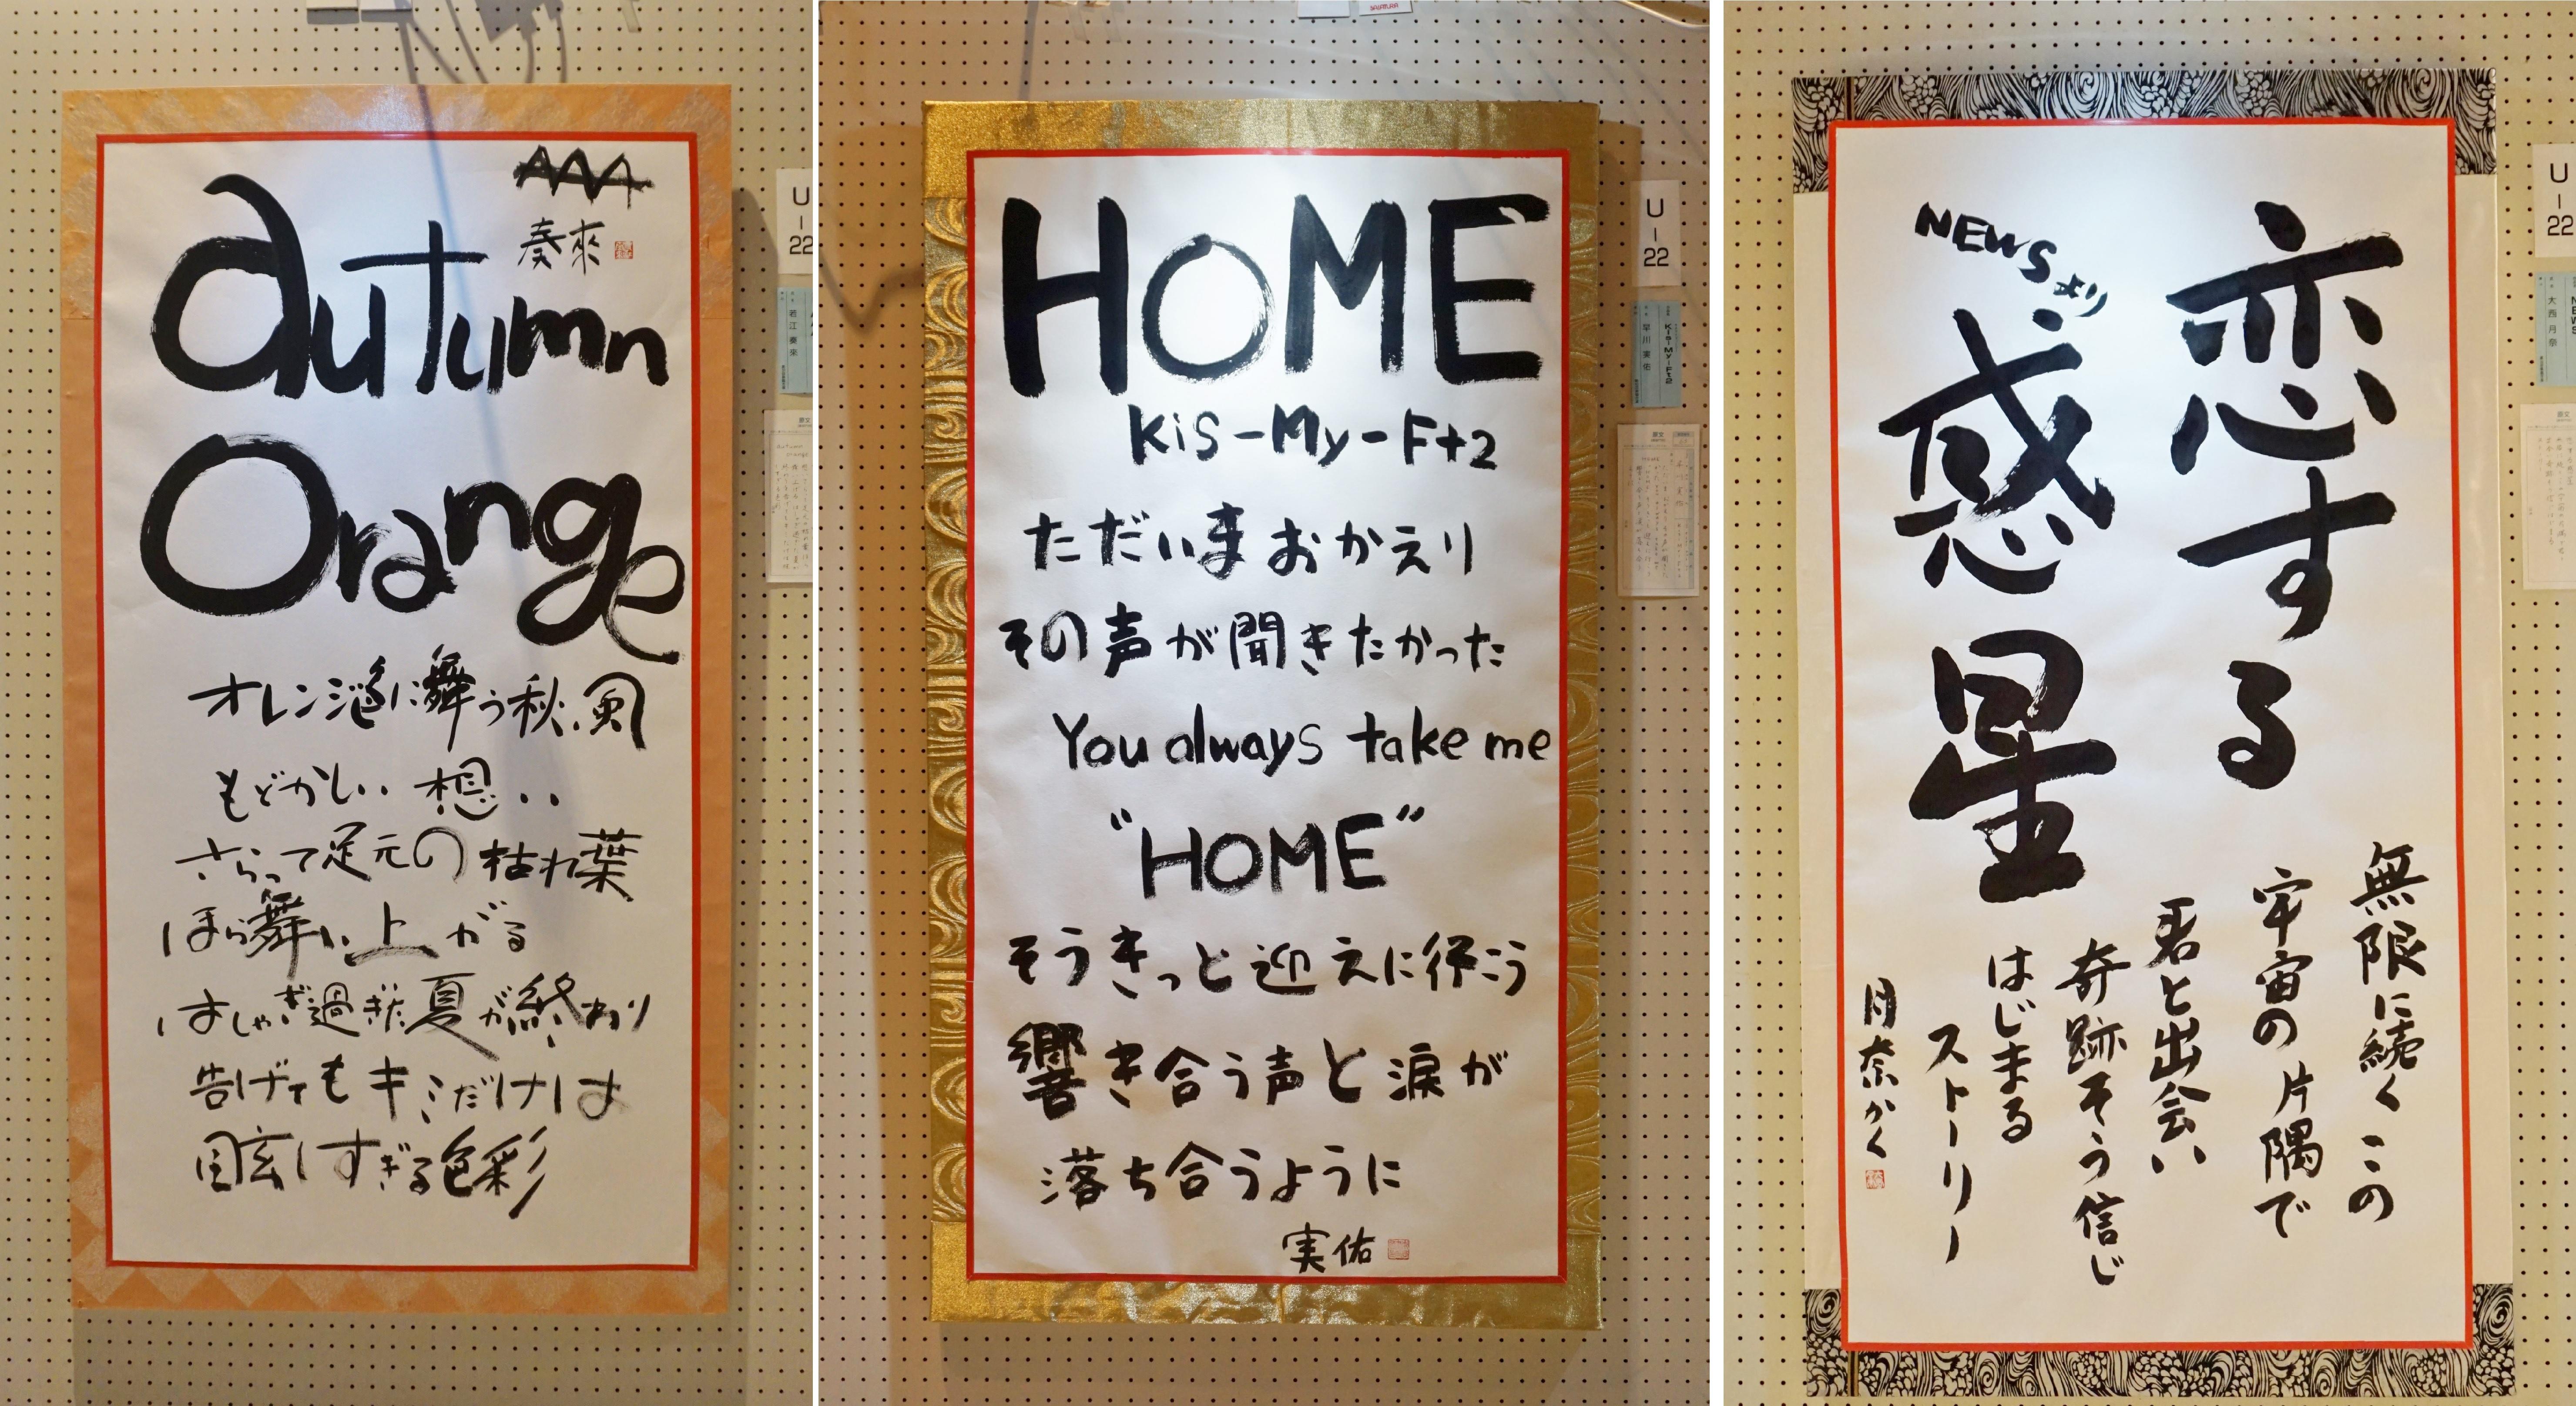 AAA
奏來
autumn
Orange
オレンジ色に舞う秋風
もどかしい想い
さらって足元の枯れ葉
ほら舞い上がる
はしゃぎ過ぎた夏が終わり
告げてもキミだけは
眩しすぎる色彩
U-22
若江奏來
HOME
Kis-My-Ft2
ただいまおかえり
その声が聞きたかった
You always take me
"HOME"
そうきっと迎えに行こう
響き合う声と涙が
落ち合うように
実佑
U-22
Kis-My-Ft2
早川実佑
原文
恋する
惑星
NEWSより
無限に続くこの
宇宙の片隅で
君と出会い
奇跡そう信じ
はじまる
ストーリー
月奈かく
U-22
NEWS
大西月奈
原文